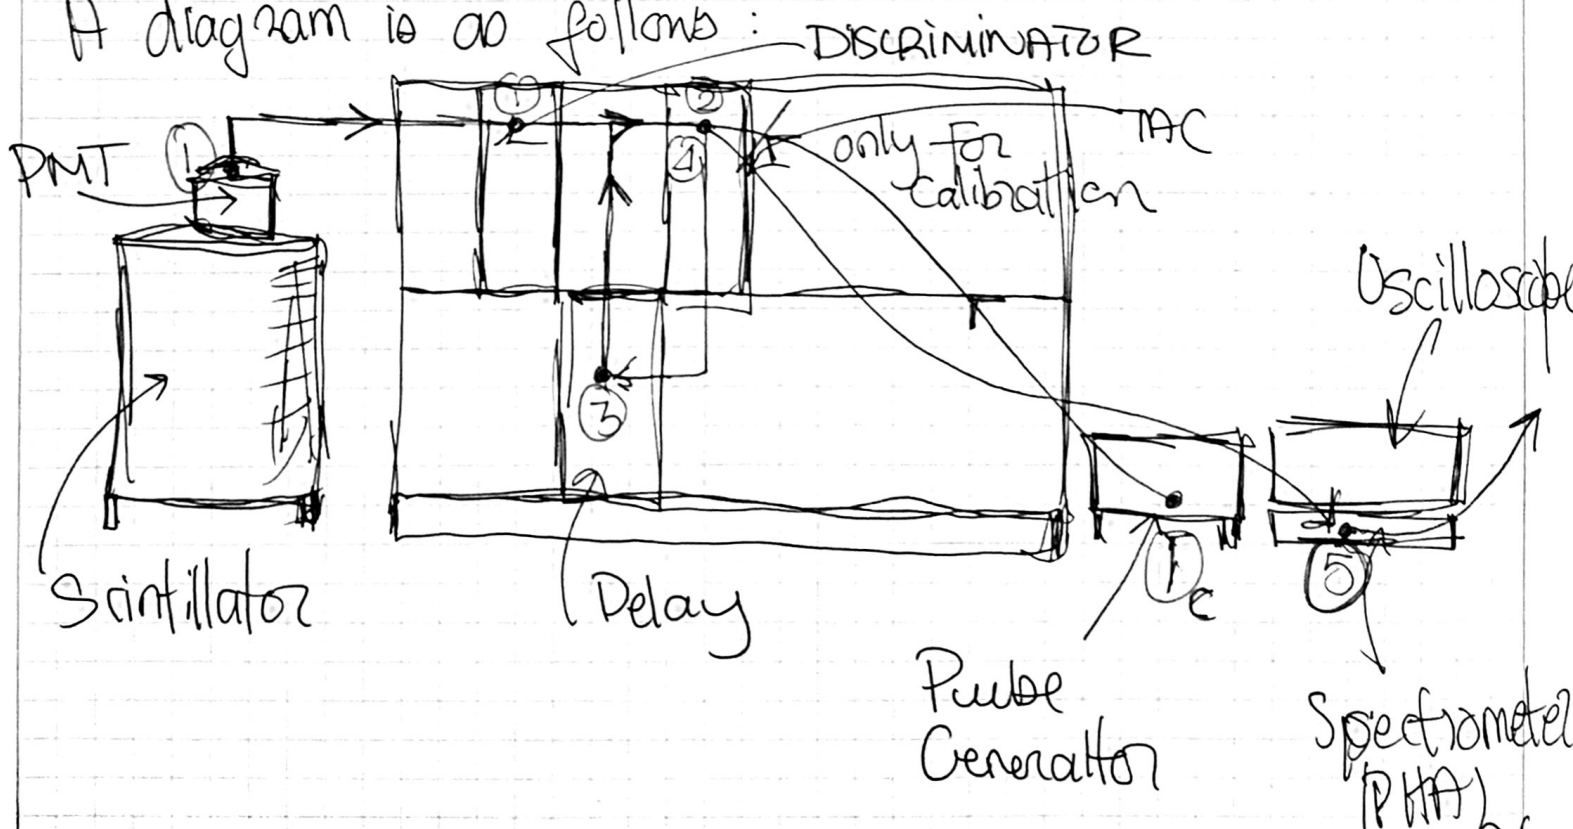 A diagram is as follows:
DISCRIMINATOR
1
2
TAC
PMT
1
4
only for
calibration
Oscilloscope
3
5
1c
Scintillator
Delay
Pulse
Generator
Spectrometer
(PHA)